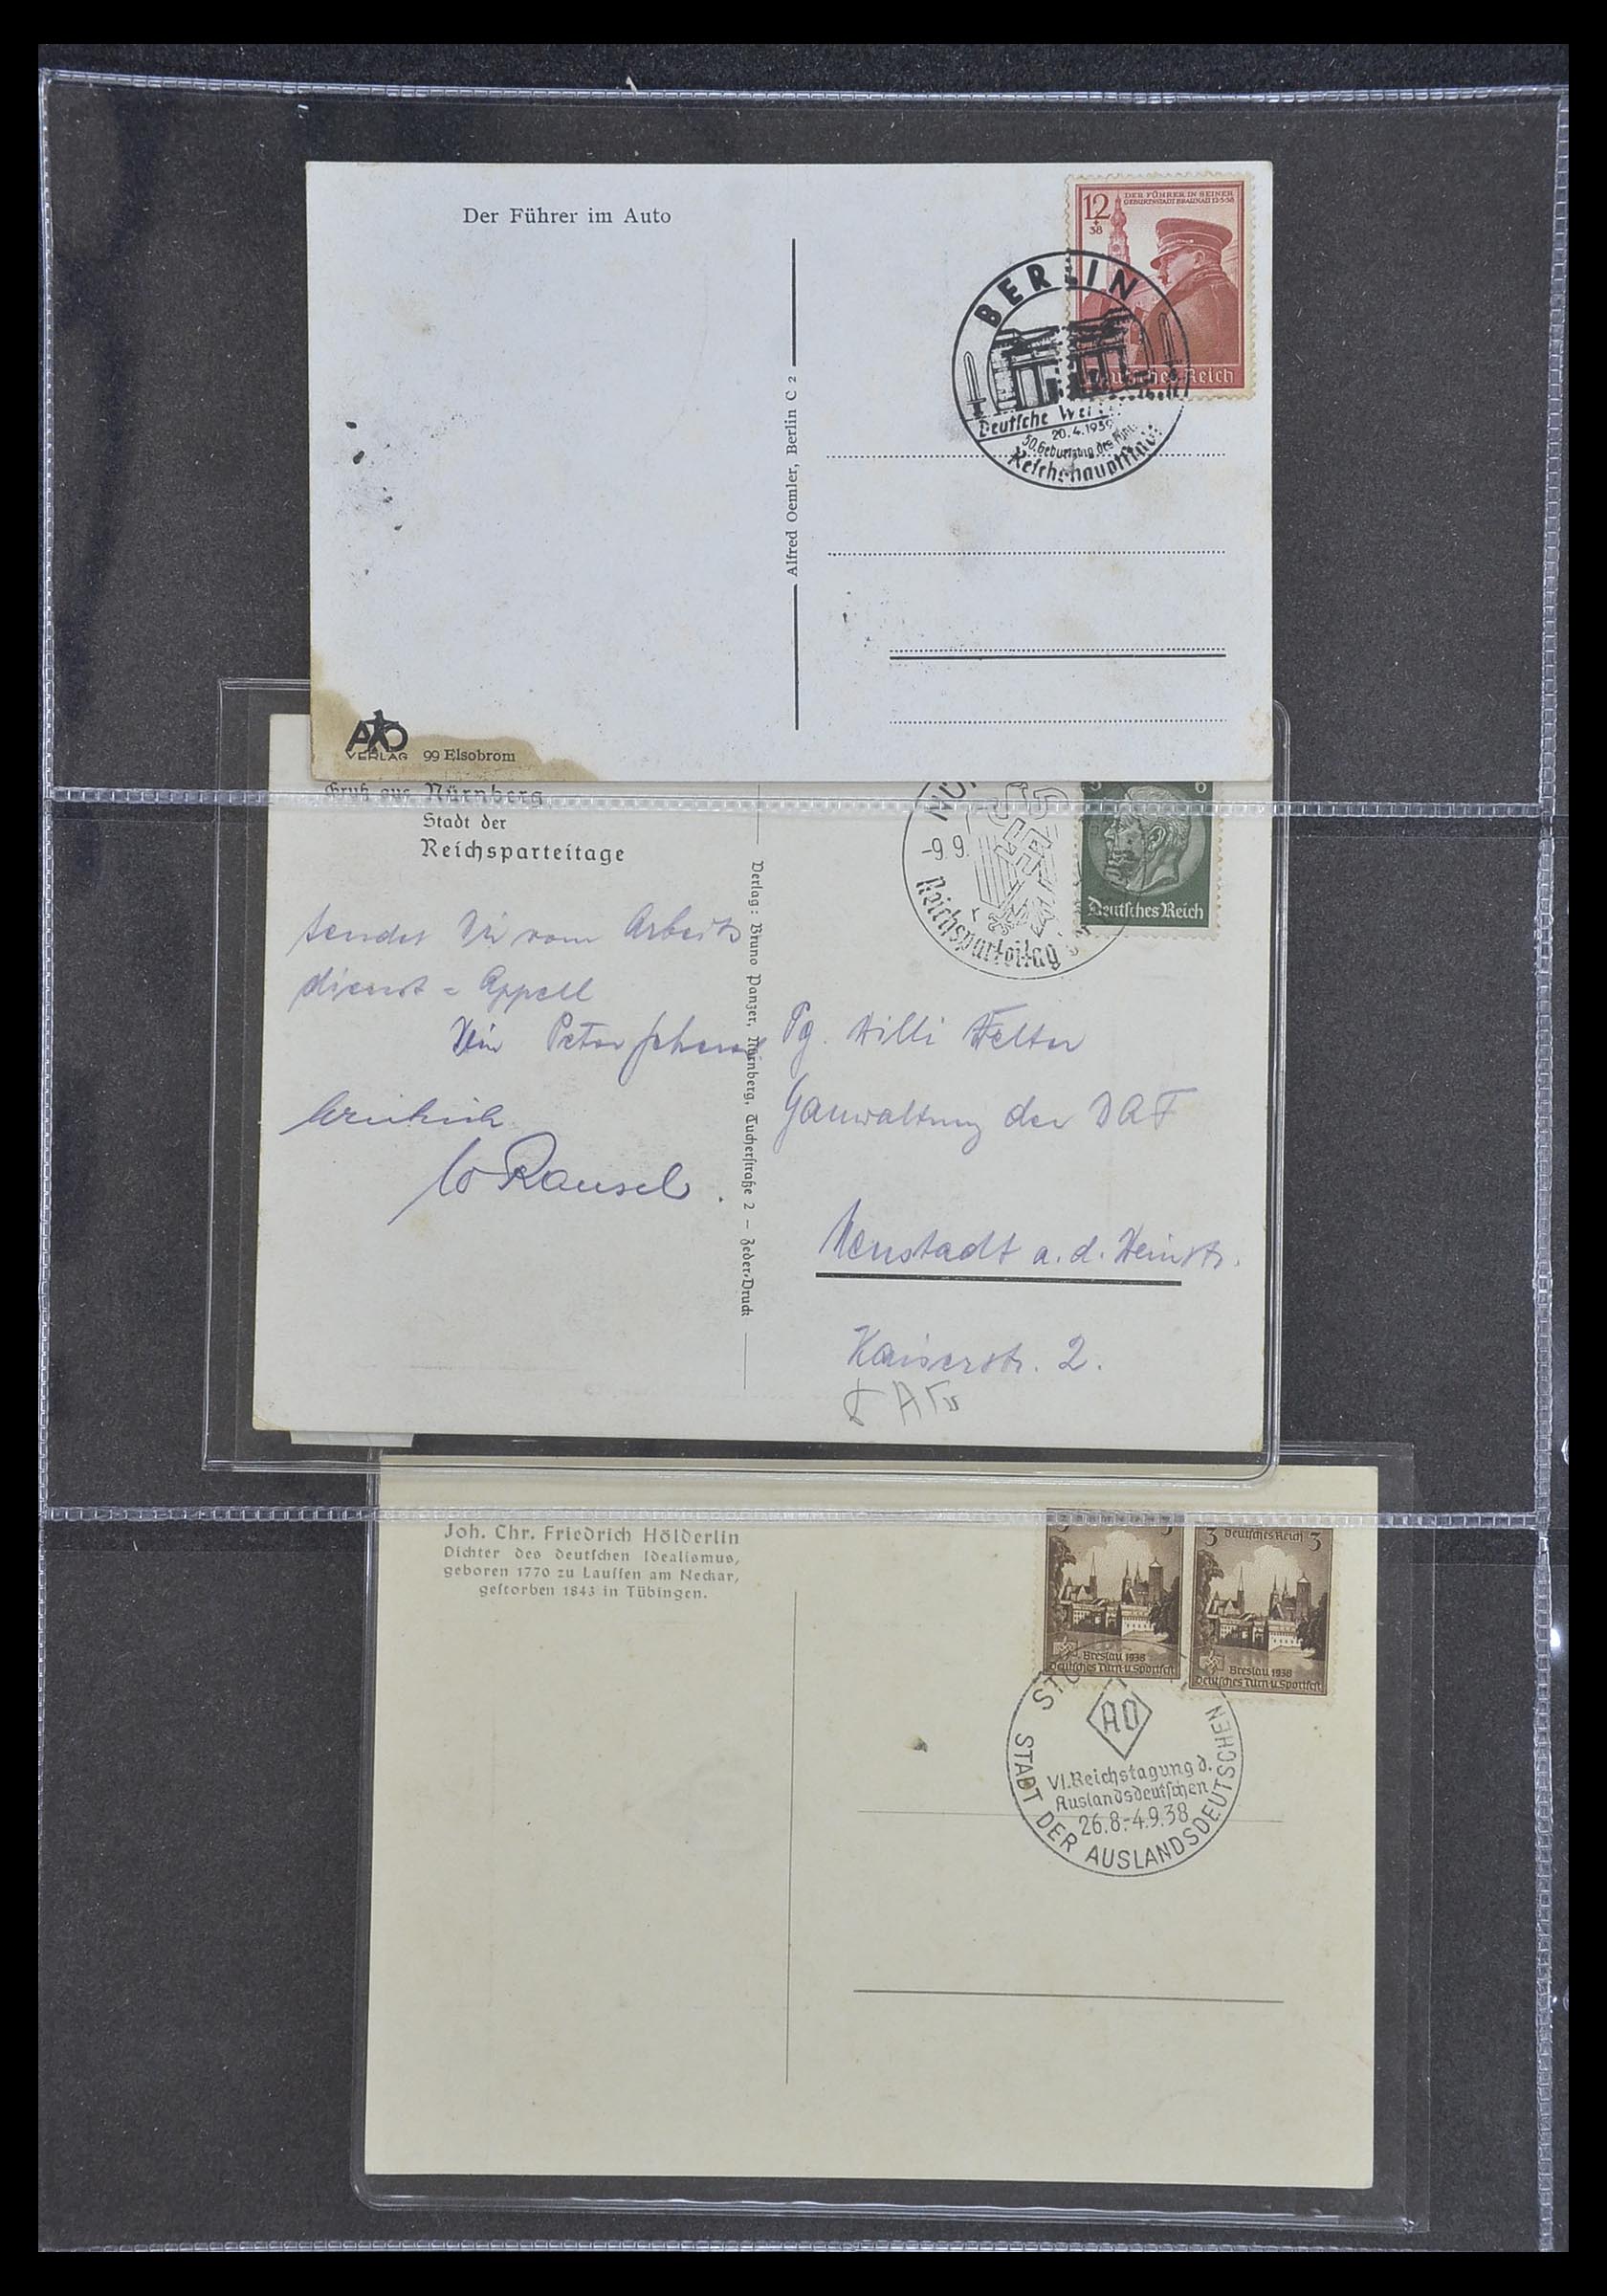 Der Führer im Auto
12
38
DER FÜHRER IN SEINER
GEBURTSSTADT BRAUNAU 12·3·38
Deutsches Reich
BERLIN
Deutsche
20.4.1939
50. Geburtstag des
Reichshauptstadt
Alfred Oemler, Berlin C 2
AO
VERLAG
99 Elsobrom
Gruß aus Nürnberg
Stadt der
Reichsparteitage
-9.9.
Reichsparteitag
6
Deutsches Reich
Verlag: Bruno Panzer, Nürnberg, Tucherstraße 2 – Zeder-Druck
sendet Dir vom Arbeits
dienst = Appell
Dein Peter
Rausel.
Pg. Willi Welter
Gauwaltung der DAF
Neustadt a.d. Weinstr.
Kaiserstr. 2.
Joh. Chr. Friedrich Hölderlin
Dichter des deutschen Idealismus,
geboren 1770 zu Lauffen am Neckar,
gestorben 1843 in Tübingen.
Breslau 1938
Deutsches Turn-u.Sportfest
3 Deutsches Reich 3
Breslau 1938
Deutsches Turn-u.Sportfest
AO
VI. Reichstagung d.
Auslandsdeutschen
26.8.-4.9.38
STADT DER AUSLANDSDEUTSCHEN